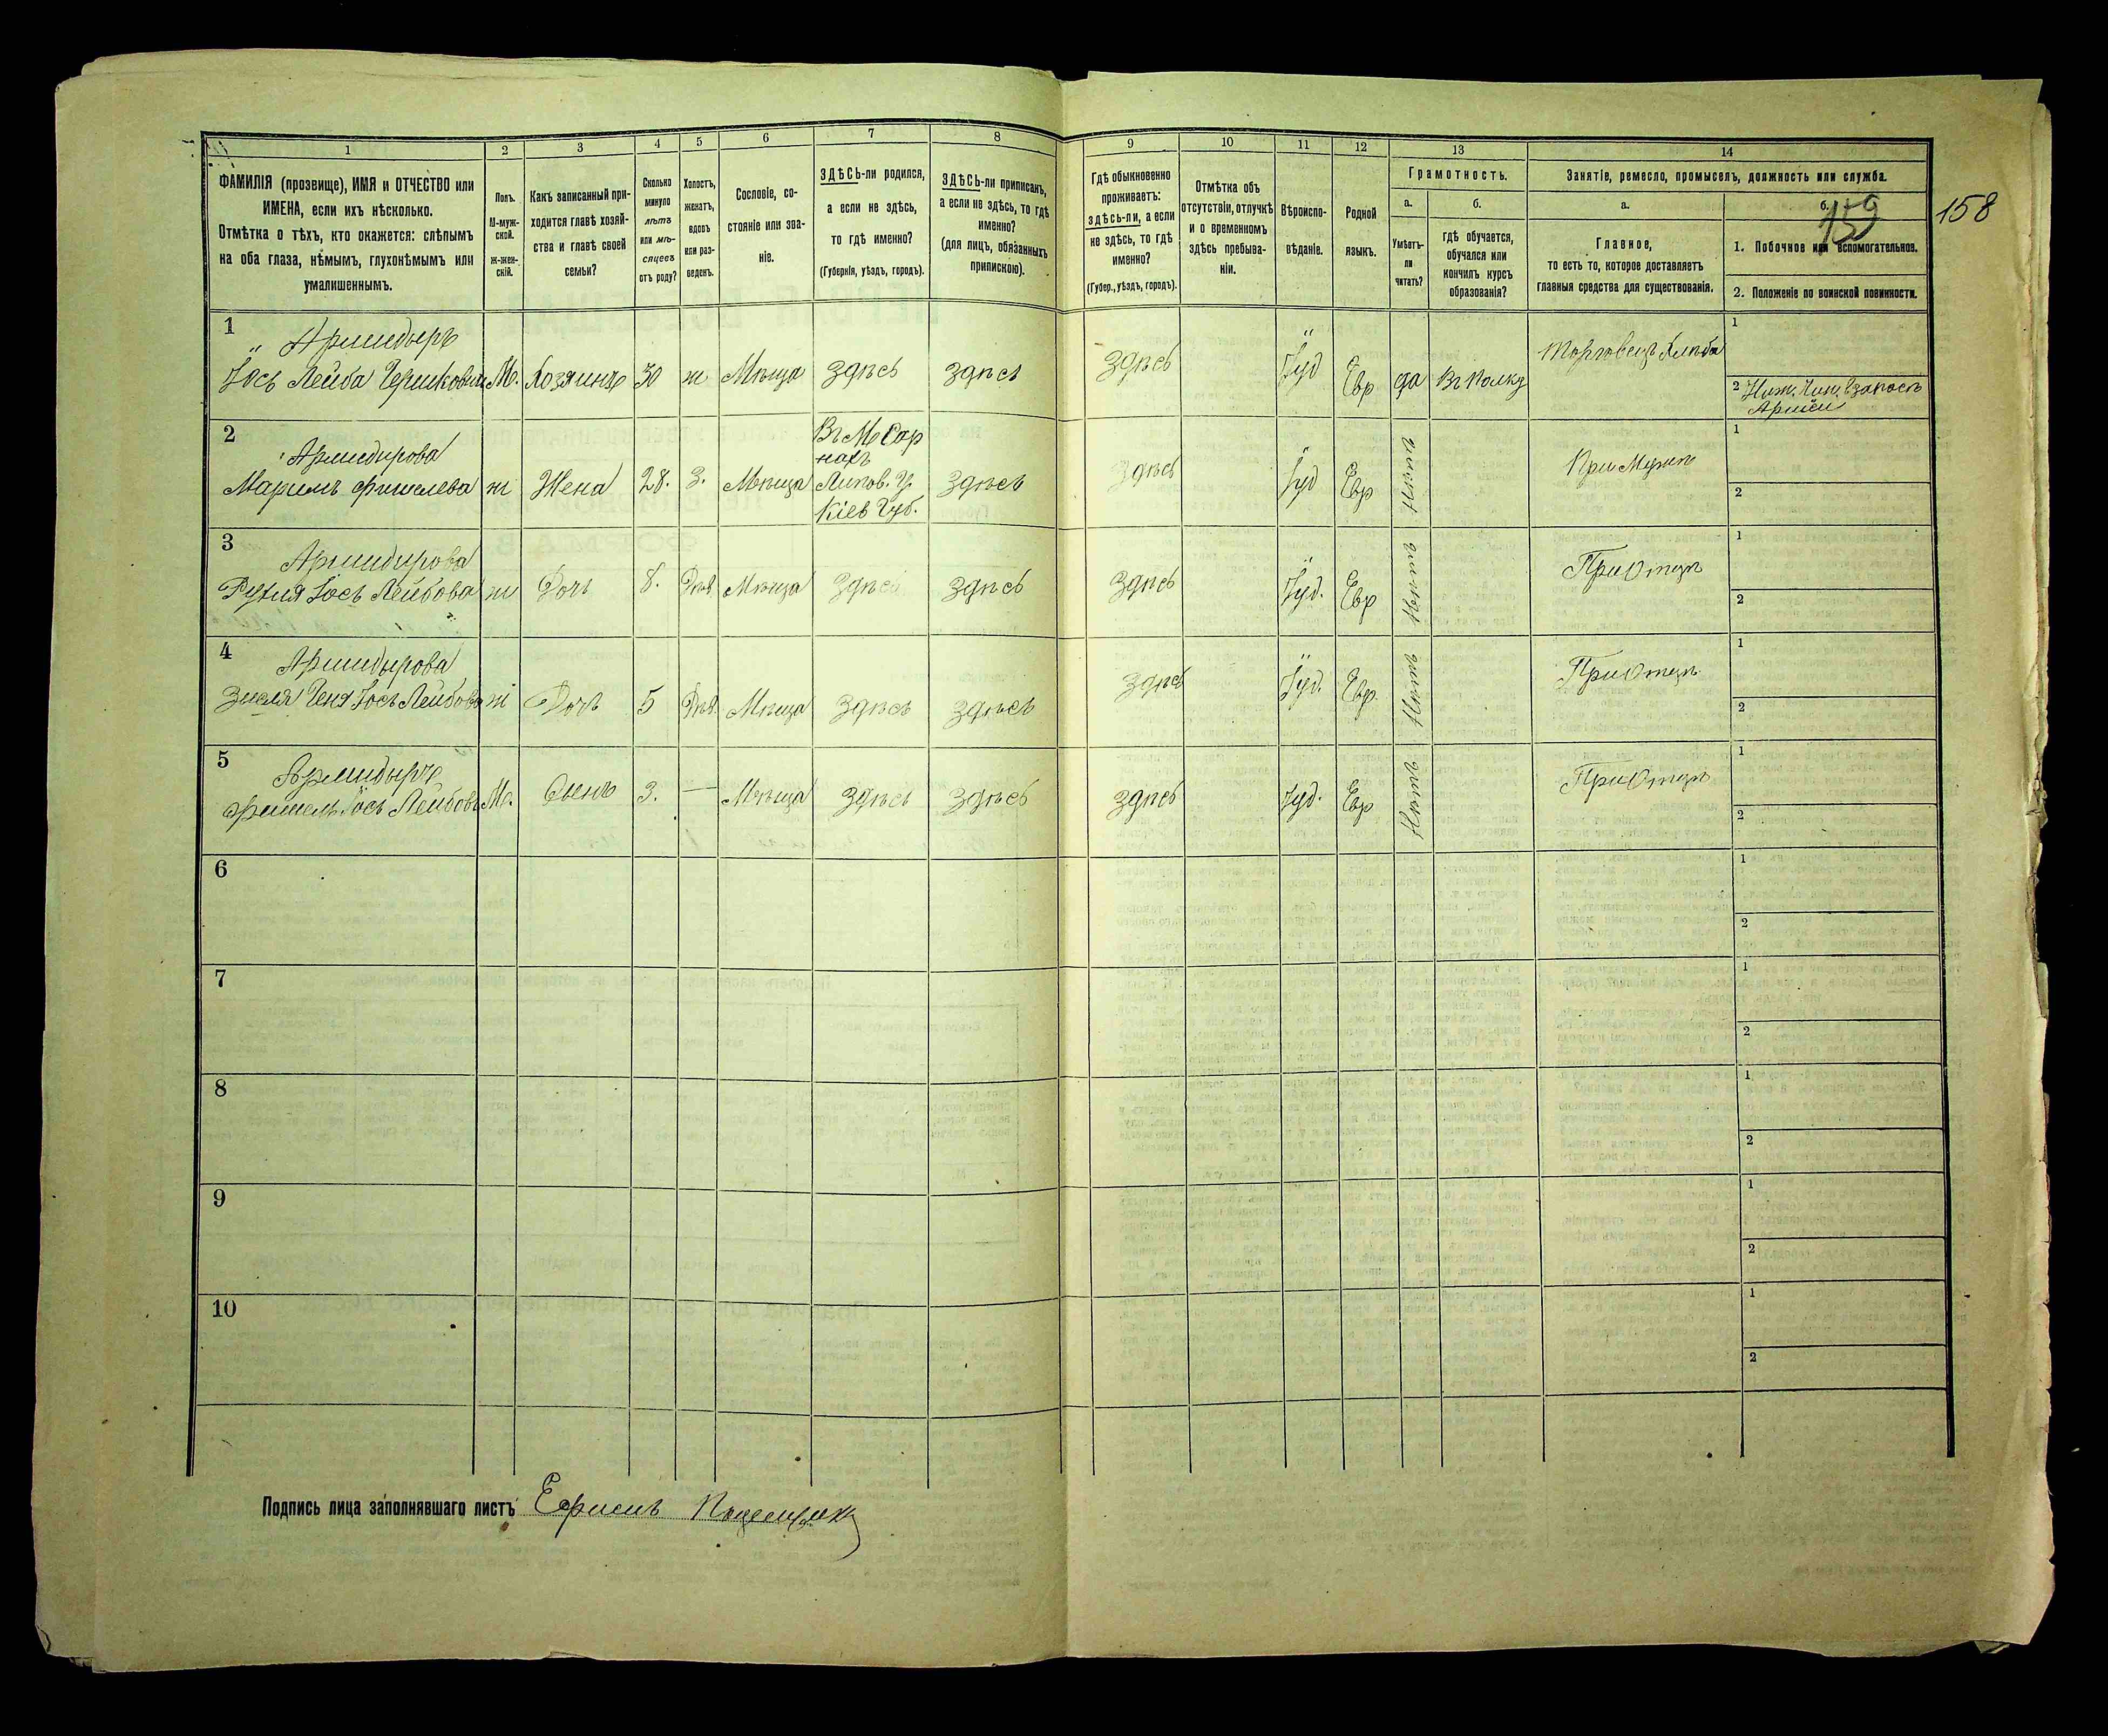 1 2 3 4 5 6 7 8 9 10 11 12 13 14
ФАМИЛІЯ (прозвище), ИМЯ и ОТЧЕСТВО или
ИМЕНА, если ихъ нѣсколько.
Отмѣтка о тѣхъ, кто окажется: слѣпымъ
на оба глаза, нѣмымъ, глухонѣмымъ или
умалишеннымъ.
Полъ.
М-муж-
ской.
ж-жен-
скій.
Какъ записанный при-
ходится главѣ хозяй-
ства и главѣ своей
семьи?
Сколько
минуло
лѣтъ
или мѣ-
сяцевъ
отъ роду?
Холостъ,
женатъ,
вдовъ
или раз-
веденъ.
Сословіе, со-
стояніе или зва-
ніе.
ЗДѢСЬ-ли родился,
а если не здѣсь,
то гдѣ именно?
(Губернія, уѣздъ, городъ).
ЗДѢСЬ-ли приписанъ,
а если не здѣсь, то гдѣ
именно?
(для лицъ, обязанныхъ
припискою).
Гдѣ обыкновенно
проживаетъ:
здѣсь-ли, а если
не здѣсь, то гдѣ
именно?
(Губер., уѣздъ, городъ).
Отмѣтка объ
отсутствіи, отлучкѣ
и о временномъ
здѣсь пребыва-
ніи.
Вѣроиспо-
вѣданіе.
Родной
языкъ.
Грамотность.
а.
Умѣетъ-
ли
читать?
б.
гдѣ обучается,
обучался или
кончилъ курсъ
образованія?
Занятіе, ремесло, промыселъ, должность или служба.
а.
Главное,
то есть то, которое доставляетъ
главныя средства для существованія.
б.
159
1. Побочное или вспомогательное.
2. Положеніе по воинской повинности.
158
1
Іось Лейба Гершковичъ М. Хозяинъ 30 ж Мѣща здѣсь здѣсь здѣсь Іуд Евр да Въ Полку Торговецъ Хлѣба
1
2 Ниж. Чин. Запаса
Арміи
2
Фишелева ж Жена 28. З. Мѣща
Липов. У.
Кіев Губ.
здѣсь здѣсь Іуд Евр Негр При Мужѣ
1
2
3
Іось Лейбова ж Дочь 8. Дѣв. Мѣща здѣсь здѣсь здѣсь Іуд. Евр При Отцѣ
1
2
4
Іось Лейбова ж Дочь 5 Дѣв. Мѣща здѣсь здѣсь здѣсь Іуд. Евр. При Отцѣ
1
2
5
Фишель Іось Лейбовъ М. Сынъ 3. — Мѣща здѣсь здѣсь здѣсь Іуд. Евр При Отцѣ
1
2
6
1
2
7
1
2
8
1
2
9
1
2
10
1
2
Подпись лица заполнявшаго листъ